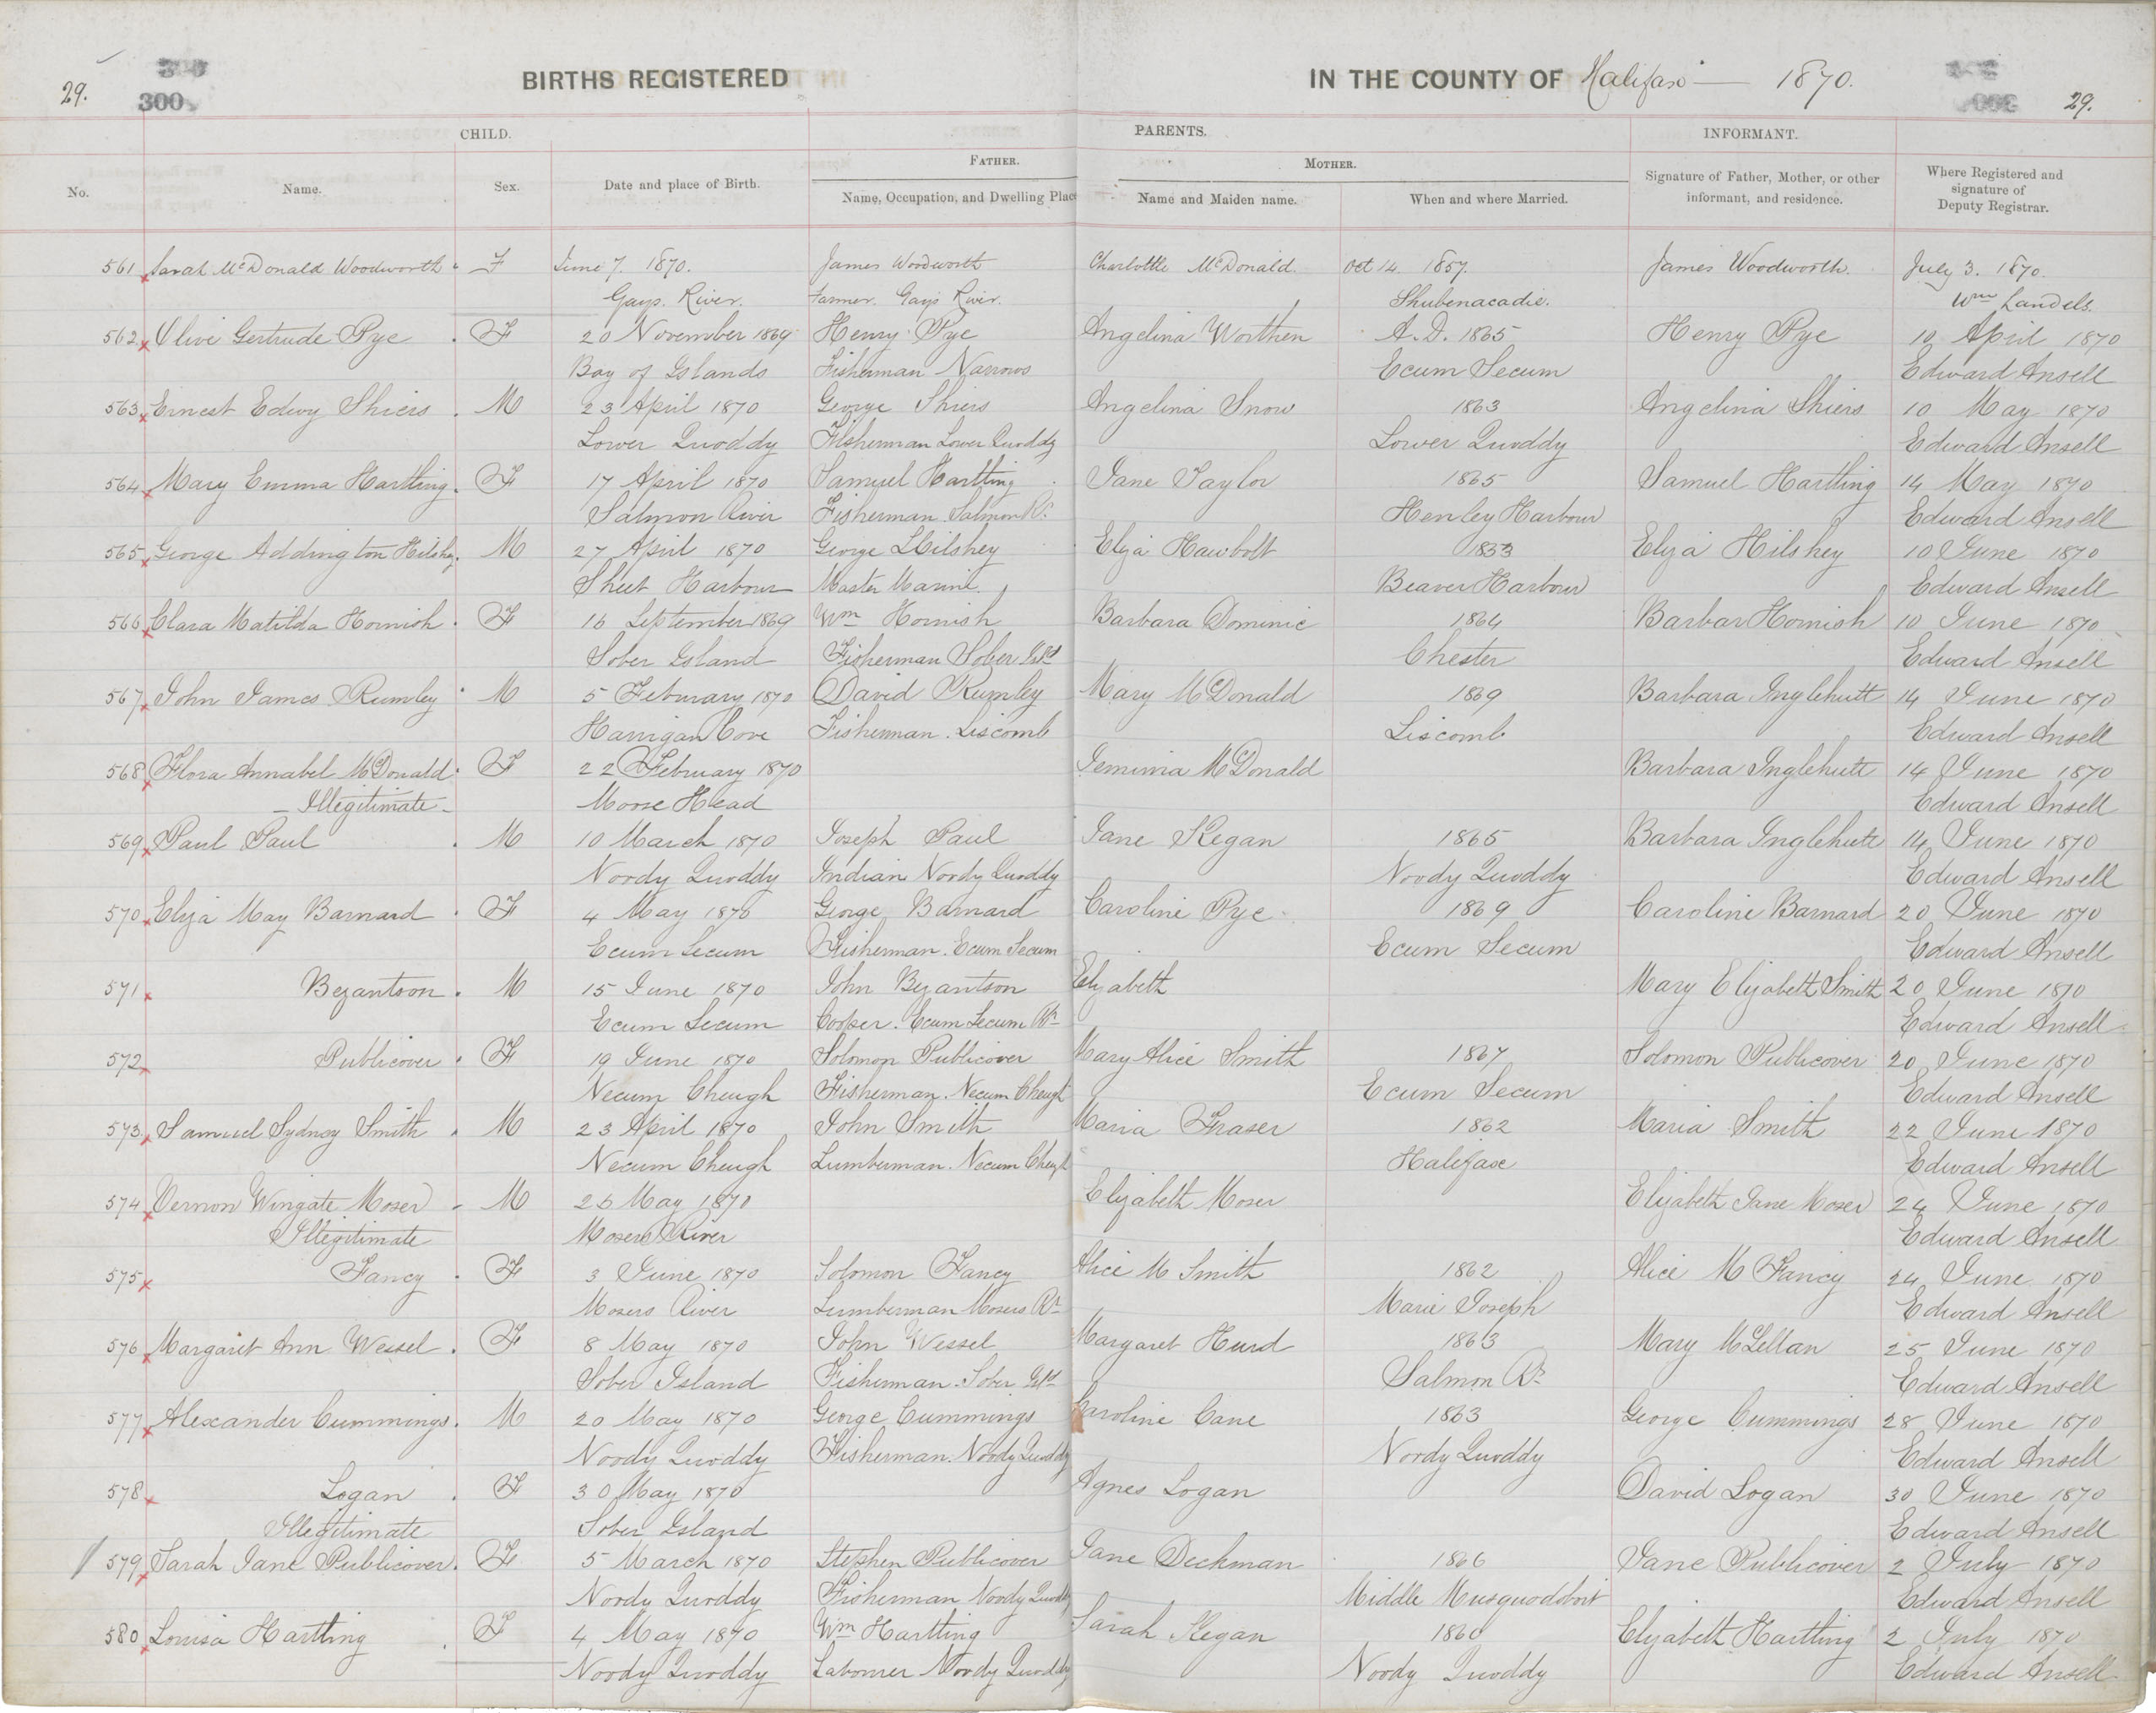 29.
300
BIRTHS REGISTERED IN THE COUNTY OF Halifax — 1870.
29.
CHILD. PARENTS. INFORMANT.
FATHER. MOTHER.
No. Name. Sex. Date and place of Birth. Name, Occupation, and Dwelling Place Name and Maiden name. When and where Married. Signature of Father, Mother, or other informant, and residence. Where Registered and signature of Deputy Registrar.
561 Sarah McDonald Woodworth F June 7. 1870. James Woodworth Charlottle McDonald. Oct 14. 1857. James Woodworth. July 3. 1870.
Gays. River. Farmer. Gays River. Shubenacadie. Wm Landels.
562 Olive Gertrude Pye F 20 November 1869 Henry Pye Angelina Worthen A.D. 1865 Henry Pye 10 April 1870
Bay of Islands Fisherman Narrows Ecum Secum Edward Ansell
563 Ernest Edwy Shiers M 23 April 1870 George Shiers Angelina Snow 1863 Angelina Shiers 10 May 1870
Lower Quoddy Fisherman Lower Quoddy Lower Quoddy Edward Ansell
564 Mary Emma Hartling F 17 April 1870 Samuel Hartling Jane Taylor 1865 Samuel Hartling 14 May 1870
Salmon River Fisherman Salmon Rr Henley Harbour Edward Ansell
565 George Addington Hilshey M 27 April 1870 George Hilshey Eliza Hawbolt 1853 Eliza Hilshey 10 June 1870
Sheet Harbour Master Marine. Beaver Harbour Edward Ansell
566 Clara Matilda Hornish F 16 September 1869 Wm Hornish Barbara Dominic 1864 Barbar Hornish 10 June 1870
Sober Island Fisherman Sober Isld Chester Edward Ansell
567 John James Rumley M 5 February 1870 David Rumley Mary McDonald 1869 Barbara Inglehutt 14 June 1870
Harrigan Cove Fisherman. Liscomb Liscomb Edward Ansell
568 Flora Annabel McDonald F 22 February 1870 Jemima McDonald Barbara Inglehutt 14 June 1870
— Illegitimate — Moose Head Edward Ansell
569 Paul Paul M 10 March 1870 Joseph Paul Jane Kegan 1865 Barbara Inglehutt 14 June 1870
Noody Quoddy Indian Noody Quoddy Noody Quoddy Edward Ansell
570 Eliza May Barnard F 4 May 1870 George Barnard Caroline Pye 1869 Caroline Barnard 20 June 1870
Ecum Secum Fisherman. Ecum Secum Ecum Secum Edward Ansell
571 Bezantson. M 15 June 1870 John Bezantson Elizabeth Mary Elizabeth Smith 20 June 1870
Ecum Secum Cooper. Ecum Secum Rr Edward Ansell
572 Publicover F 19 June 1870 Solomon Publicover Mary Alice Smith 1867 Solomon Publicover 20 June 1870
Necum Cheugh Fisherman. Necum Cheugh Ecum Secum Edward Ansell
573 Samuel Sydney Smith M 23 April 1870 John Smith Maria Fraser 1862 Maria Smith 22 June 1870
Necum Cheugh Lumberman. Necum Cheugh Halifax Edward Ansell
574 Vernon Wingate Moser M 26 May 1870 Elizabeth Moser Elizabeth Jane Moser 24 June 1870
Illegitimate Mosers River Edward Ansell
575 Fancy F 3 June 1870 Solomon Fancy Alice M Smith 1862 Alice M Fancy 24 June 1870
Mosers River Lumberman Mosers Rr Marie Joseph Edward Ansell
576 Margaret Ann Wessel F 8 May 1870 John Wessel Margaret Hurd 1863 Mary McLellan 25 June 1870
Sober Island Fisherman. Sober Isld Salmon Rr Edward Ansell
577 Alexander Cummings. M 20 May 1870 George Cummings Caroline Cane 1863 George Cummings 28 June 1870
Noody Quoddy Fisherman. Noody Quoddy Noody Quoddy Edward Ansell
578 Logan F 30 May 1870 Agnes Logan David Logan 30 June 1870
Illegitimate Sober Island Edward Ansell
579 Sarah Jane Publicover. F 5 March 1870 Stephen Publicover Jane Deckman 1866 Jane Publicover 2 July 1870
Noody Quoddy Fisherman Noody Quoddy Middle Musquodoboit Edward Ansell
580 Louisa Hartling F 4 May 1870 Wm Hartling Sarah Kegan 1860 Elizabeth Hartling 2 July 1870
Noody Quoddy Labourer Noody Quoddy Noody Quoddy Edward Ansell